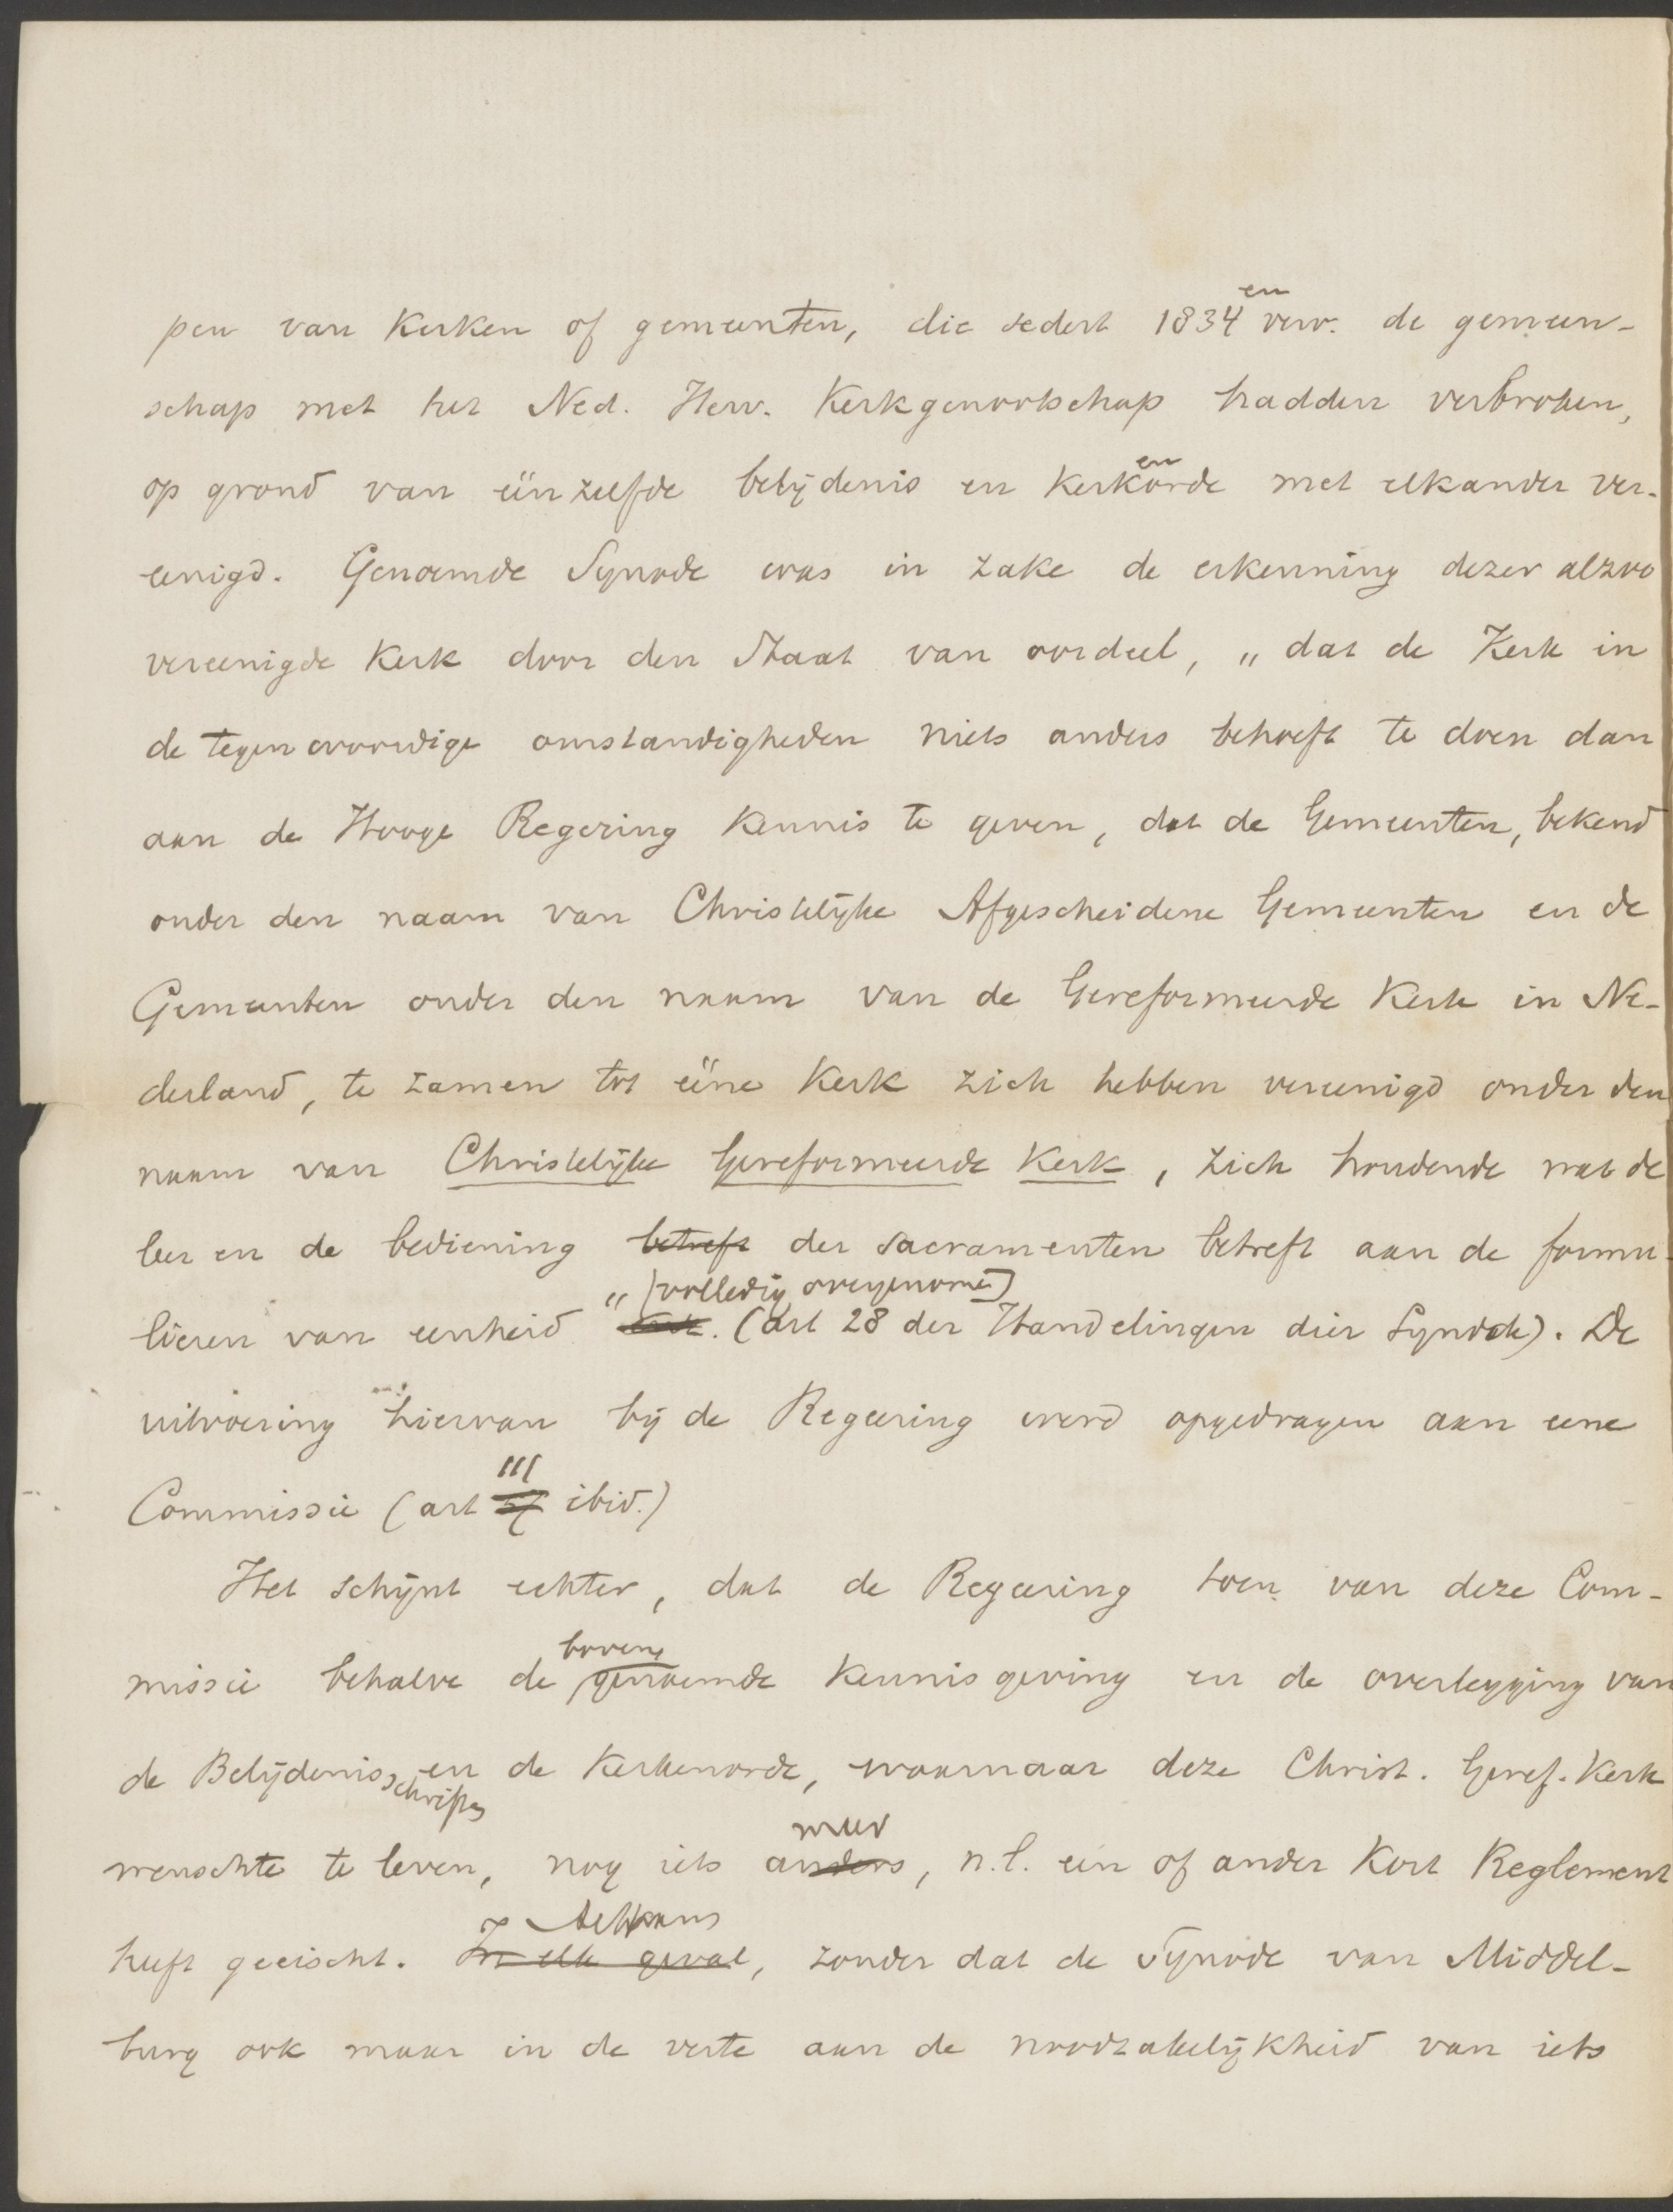 pen van Kerken of gemeenten, die sedert 1834 en verv. de gemeen-
schap met het Ned. Herv. Kerkgenootschap hadden verbroken,
op grond van éénzelfde belijdenis en Kerkenorde met elkander ver-
eenigd. Genoemde Synode was in zake de erkenning dezer alzoo
vereenigde Kerk door den Staat van oordeel, „dat de Kerk in
de tegenwoordige omstandigheden niets anders behoeft te doen dan
aan de Hooge Regering kennis te geven, dat de Gemeenten, bekend
onder den naam van Christelijke Afgescheidene Gemeenten en de
Gemeenten onder den naam van de Gereformeerde Kerk in Ne-
derland, te zamen tot ééne Kerk zich hebben vereenigd onder den
naam van Christelijke Gereformeerde Kerk, zich houdende wat de
leer en de bediening betreft der sacramenten betreft aan de formu-
„ (volledig overgenomen)
lieren van eenheid . (art 28 der Handelingen dier Synode). De
uitvoering hiervan bij de Regeering werd opgedragen aan eene
Commissie (art 111 ibid.)
Het schijnt echter, dat de Regeering toen van deze Com-
missie behalve de bovengenoemde kennisgeving en de overlegging van
de Belijdenisschriften en de Kerkenorde, waarnaar deze Christ. Geref. Kerk
meer
wenschte te leven, nog iets anders, n.l. een of ander Kort Reglement
Althans
heeft geëischt. In elk geval, zonder dat de Synode van Middel-
burg ook maar in de verte aan de noodzakelijkheid van iets